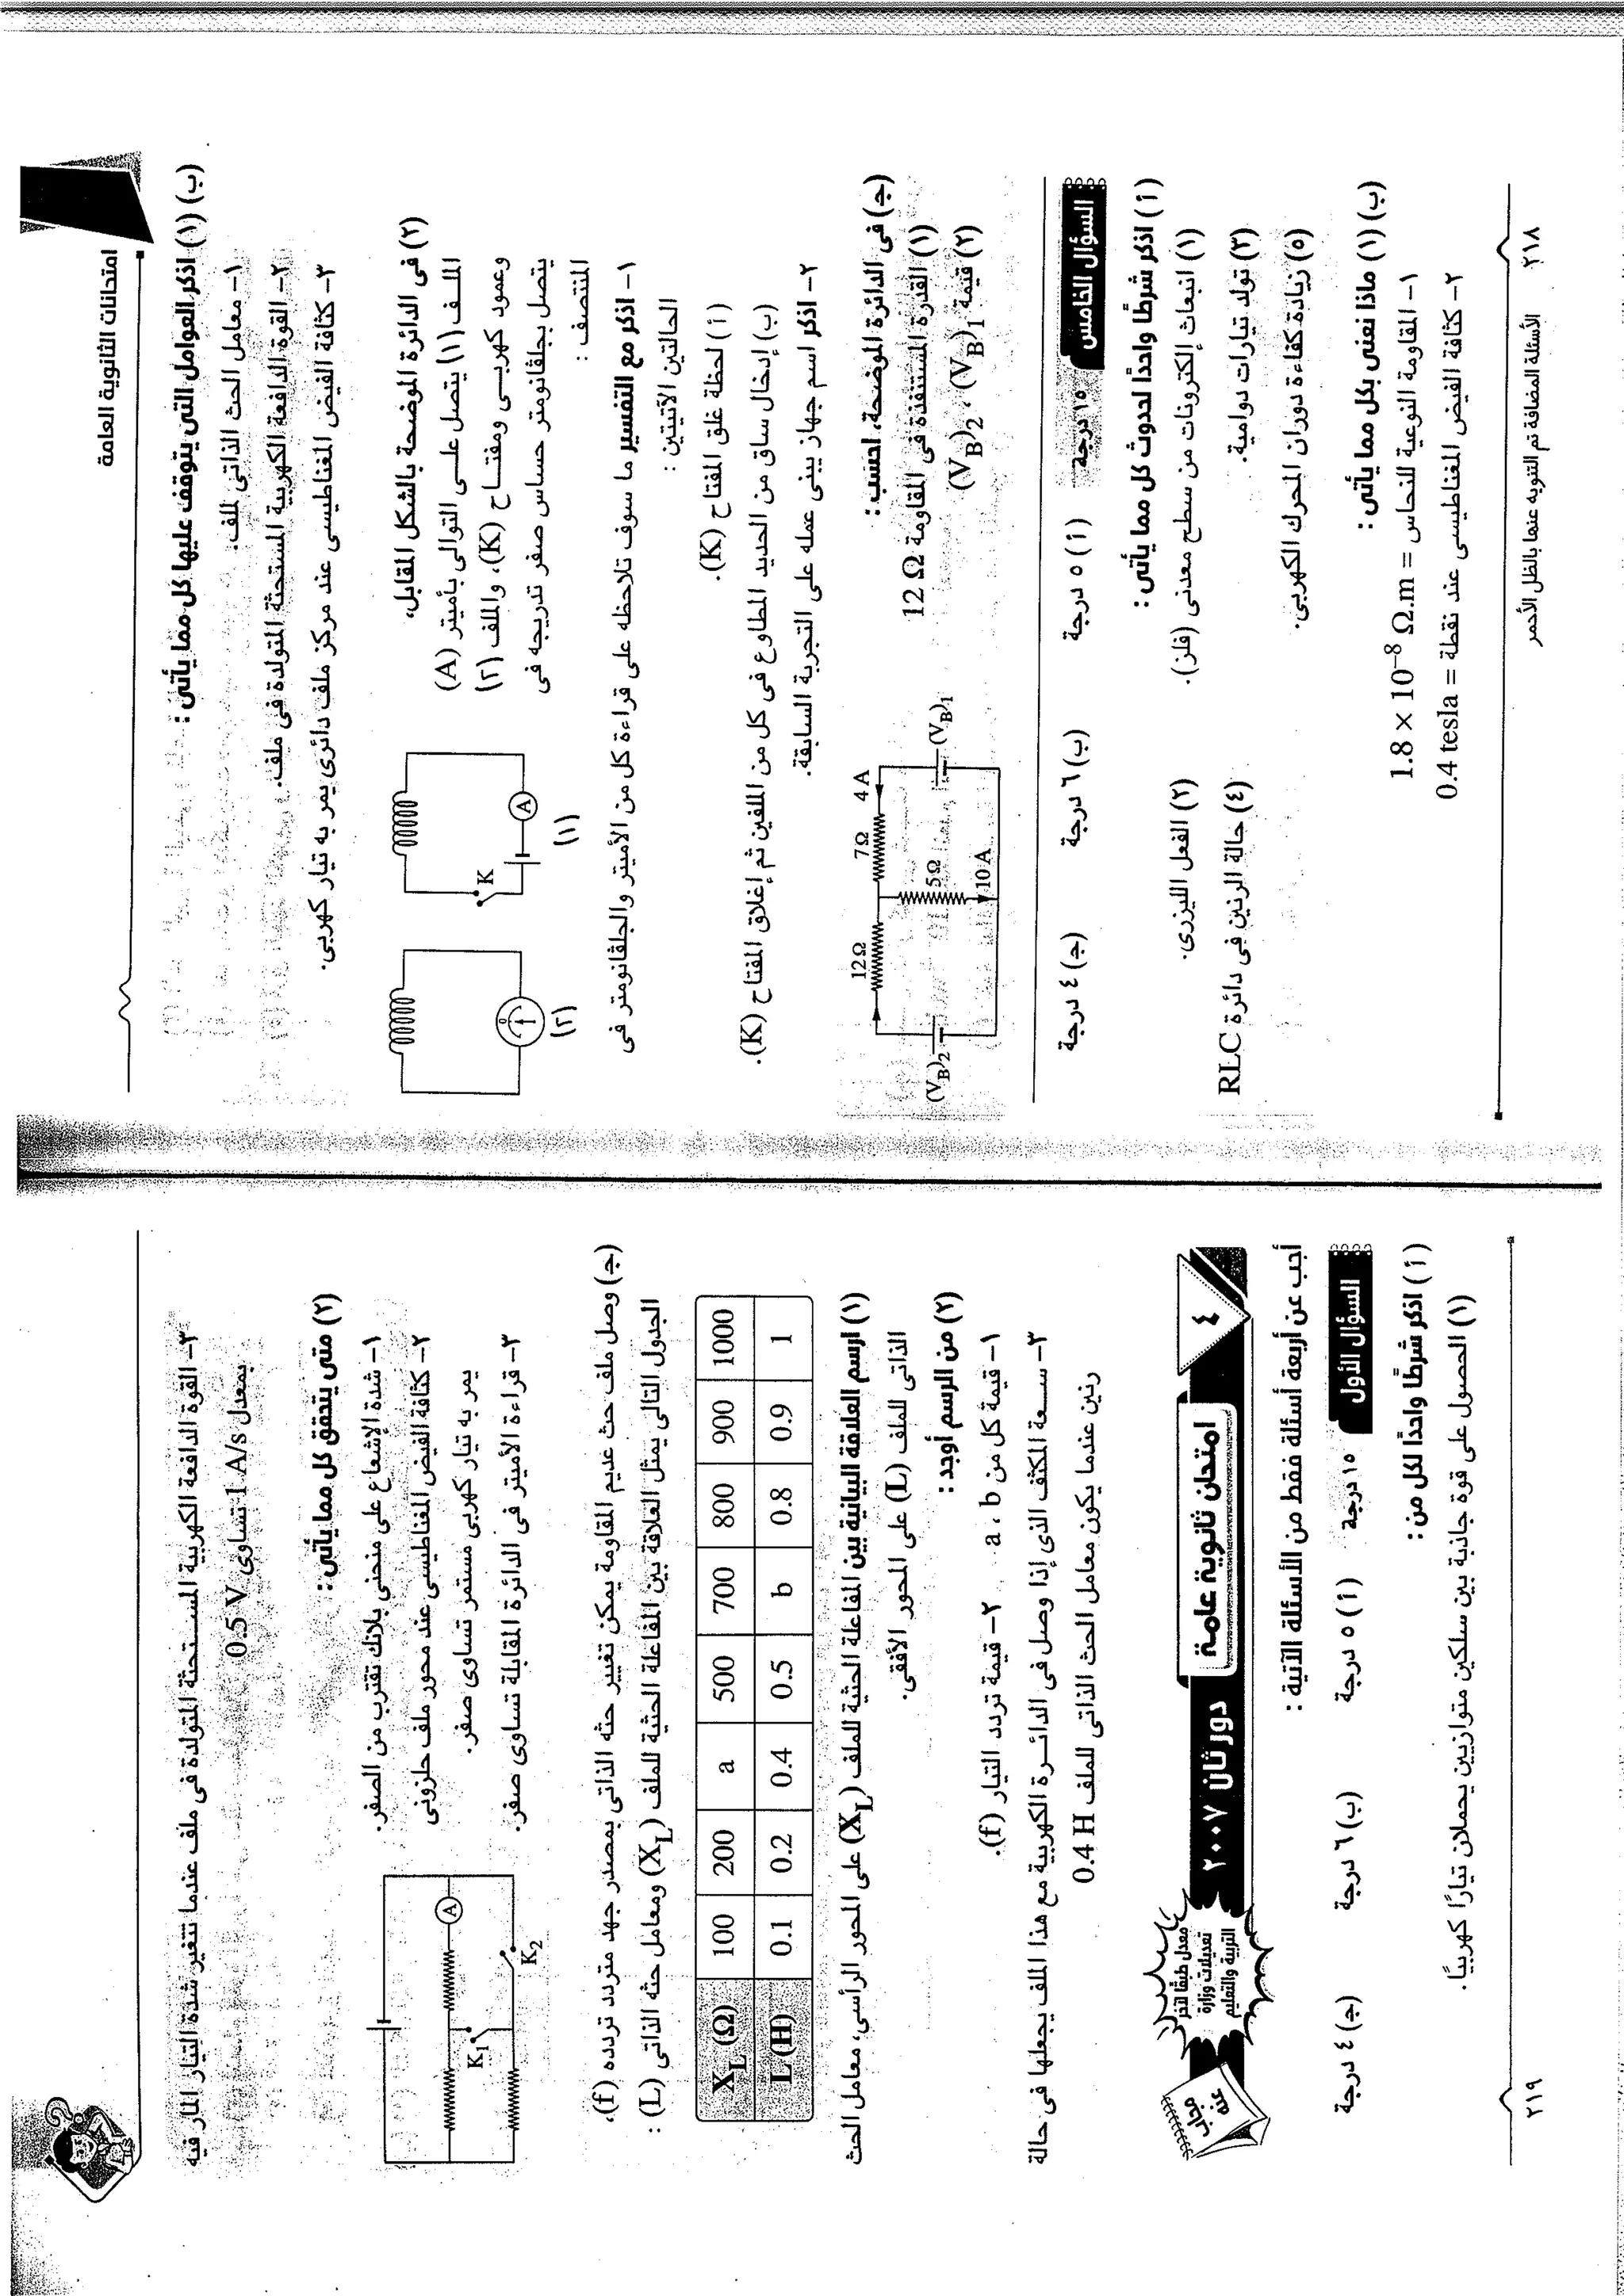 امتحانات الثانوية العامة
(ب) (١) اذكر العوامل التى يتوقف عليها كل مما يأتى :
١- معامل الحث الذاتى لملف.
٢- القوة الدافعة الكهربية المستحثة المتولدة فى ملف.
٣- كثافة الفيض المغناطيسى عند مركز ملف دائرى يمر به تيار كهربى.
(٢) فى الدائرة الموضحة بالشكل المقابل،
الملف (١) يتصل على التوالى بأميتر (A)
وعمود كهربى ومفتاح (K)، والملف (٢)
يتصل بجلڤانومتر حساس صفر تدريجه فى
المنتصف :
K
A
(١)
0
(٢)
١- اذكر مع التفسير ما سوف تلاحظه على قراءة كل من الأميتر والجلڤانومتر فى
الحالتين الآتيتين :
(أ) لحظة غلق المفتاح (K).
(ب) إدخال ساق من الحديد المطاوع فى كل من الملفين ثم إغلاق المفتاح (K).
٢- اذكر اسم جهاز يبنى عمله على التجربة السابقة.
(جـ) فى الدائرة الموضحة، احسب :
(١) القدرة المستنفذة فى المقاومة 12 Ω
(٢) قيمة (VB)1 ، (VB)2
12 Ω
7 Ω
4 A
5 Ω
10 A
(VB)1
(VB)2
السؤال الخامس
١٥ درجة
(أ) ٥ درجة
(ب) ٦ درجة
(جـ) ٤ درجة
(أ) اذكر شرطًا واحدًا لحدوث كل مما يأتى :
(١) انبعاث إلكترونات من سطح معدنى (فلز).
(٢) الفعل الليزرى.
(٣) تولد تيارات دوامية.
(٤) حالة الرنين فى دائرة RLC
(٥) زيادة كفاءة دوران المحرك الكهربى.
(ب) (١) ماذا نعنى بكل مما يأتى :
١- المقاومة النوعية للنحاس = 1.8 × 10⁻⁸ Ω.m
٢- كثافة الفيض المغناطيسى عند نقطة = 0.4 tesla
٢١٨
الأسئلة المضافة تم التنويه عنها بالظل الأحمر
٣- القوة الدافعة الكهربية المستحثة المتولدة فى ملف عندما تتغير شدة التيار المار فيه
بمعدل 1 A/s تساوى 0.5 V
(٢) متى يتحقق كل مما يأتى :
١- شدة الإشعاع على منحنى بلانك تقترب من الصفر.
٢- كثافة الفيض المغناطيسى عند محور ملف حلزونى
يمر به تيار كهربى مستمر تساوى صفر.
٣- قراءة الأميتر فى الدائرة المقابلة تساوى صفر.
A
K1
K2
(جـ) وصل ملف حث عديم المقاومة يمكن تغيير حثه الذاتى بمصدر جهد متردد تردده (f)،
الجدول التالى يمثل العلاقة بين المفاعلة الحثية للملف (XL) ومعامل حثه الذاتى (L) :
XL (Ω) 100 200 a 500 700 800 900 1000
L (H) 0.1 0.2 0.4 0.5 b 0.8 0.9 1
(١) ارسم العلاقة البيانية بين المفاعلة الحثية للملف (XL) على المحور الرأسى، معامل الحث
الذاتى للملف (L) على المحور الأفقى.
(٢) من الرسم أوجد :
١- قيمة كل من a ، b
٢- قيمة تردد التيار (f).
٣- سعة المكثف الذى إذا وصل فى الدائرة الكهربية مع هذا الملف يجعلها فى حالة
رنين عندما يكون معامل الحث الذاتى للملف 0.4 H
٤
امتحان ثانوية عامة
دور ثان ٢٠٠٧
معدل طبقًا لآخر
تعديلات وزارة
التربية والتعليم
مجاب
عنه
أجب عن أربعة أسئلة فقط من الأسئلة الآتية :
السؤال الأول
١٥ درجة
(أ) ٥ درجة
(ب) ٦ درجة
(جـ) ٤ درجة
(أ) اذكر شرطًا واحدًا لكل من :
(١) الحصول على قوة جاذبة بين سلكين متوازيين يحملان تيارًا كهربيًا.
٢١٩